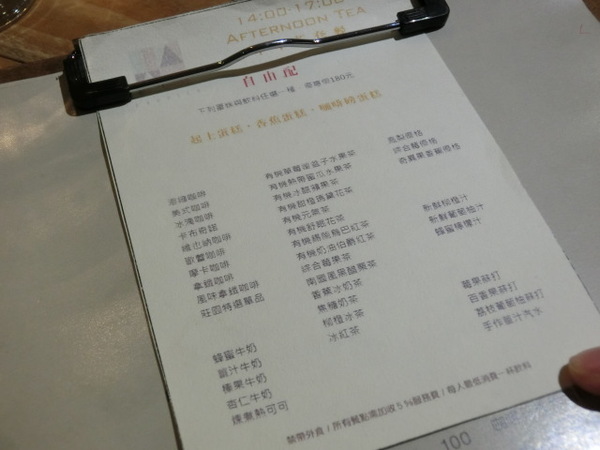 14:00-17:00
AFTERNOON TEA
自由配
下列蛋糕與飲料任選一種 180元
起上蛋糕．香魚蛋糕．
美式咖啡
冰滴咖啡
卡布奇諾
維也納咖啡
歐蕾咖啡
摩卡咖啡
拿鐵咖啡
風味拿鐵咖啡
莊園特選單品
蜂蜜牛奶
薑汁牛奶
榛果牛奶
杏仁牛奶
煉煮熱可可
有機熱帶蜜瓜水果茶
有機冰靛蘋果茶
有機甜橙瑪黛花茶
有機元氣茶
有機舒眠花茶
有機錫蘭烏巴紅茶
有機奶油伯爵紅茶
綜合莓果茶
南國風黑醋栗茶
香蕉冰奶茶
焦糖奶茶
柳橙冰茶
冰紅茶
鳳梨優格
綜合莓優格
奇異果香蕉優格
新鮮柳橙汁
新鮮葡萄柚汁
蜂蜜檸檬汁
莓果蘇打
百香果蘇打
荔枝葡萄柚蘇打
手作薑汁汽水
禁帶外食 / 所有餐點需加收5%服務費 / 每人最低消費一杯飲料
100